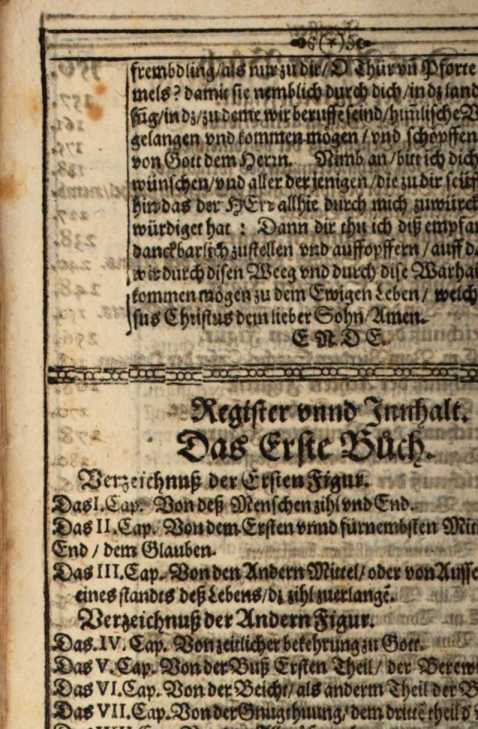 frembdling/als nur zu dir/O Thür vñ Pforte
mels? damit sie nemblich durch dich/in dz land
füg/in dz/zu deme wir beruffẽ seind/him̃lische
gelangen vnd kommen mögen/vnd schöpffen
von Gott dem Herrn. Nimb an/bitt ich dich
wünschen/vnd aller der jenigen/die zu dir seüf
hin das der HErr allhie durch mich zuwürck
würdiget hat: Dann dir thu ich diß empfan
danckbarlich zustellen vnd auffopffern/auff d
wir durch disen Weeg vnd durch dise Warhai
kommen mögen zu dem Ewigen Leben/welch
sus Christus dein lieber Sohn/Amen.
E N D E.
Register vnnd Jnnhalt.
Das Erste Büch.
Verzeichnuß der Ersten Figur.
Das I. Cap. Von deß Menschen zihl vnd End.
Das II. Cap. Von dem Ersten vnnd fürnembsten Mit
End/dem Glauben.
Das III. Cap. Von den Andern Mittel/oder von Aufse
eines standts deß Lebens/dz zihl zuerlangẽ.
Verzeichnuß der Andern Figur.
Das. IV. Cap. Von zeitlicher bekehrung zu Gott.
Das V. Cap. Von der Buß Ersten Theil/der Berew
Das VI. Cap. Von der Beicht/als anderm Theil der B
Das VII. Cap. Von der Gnugthuung/dem drittẽ theil d